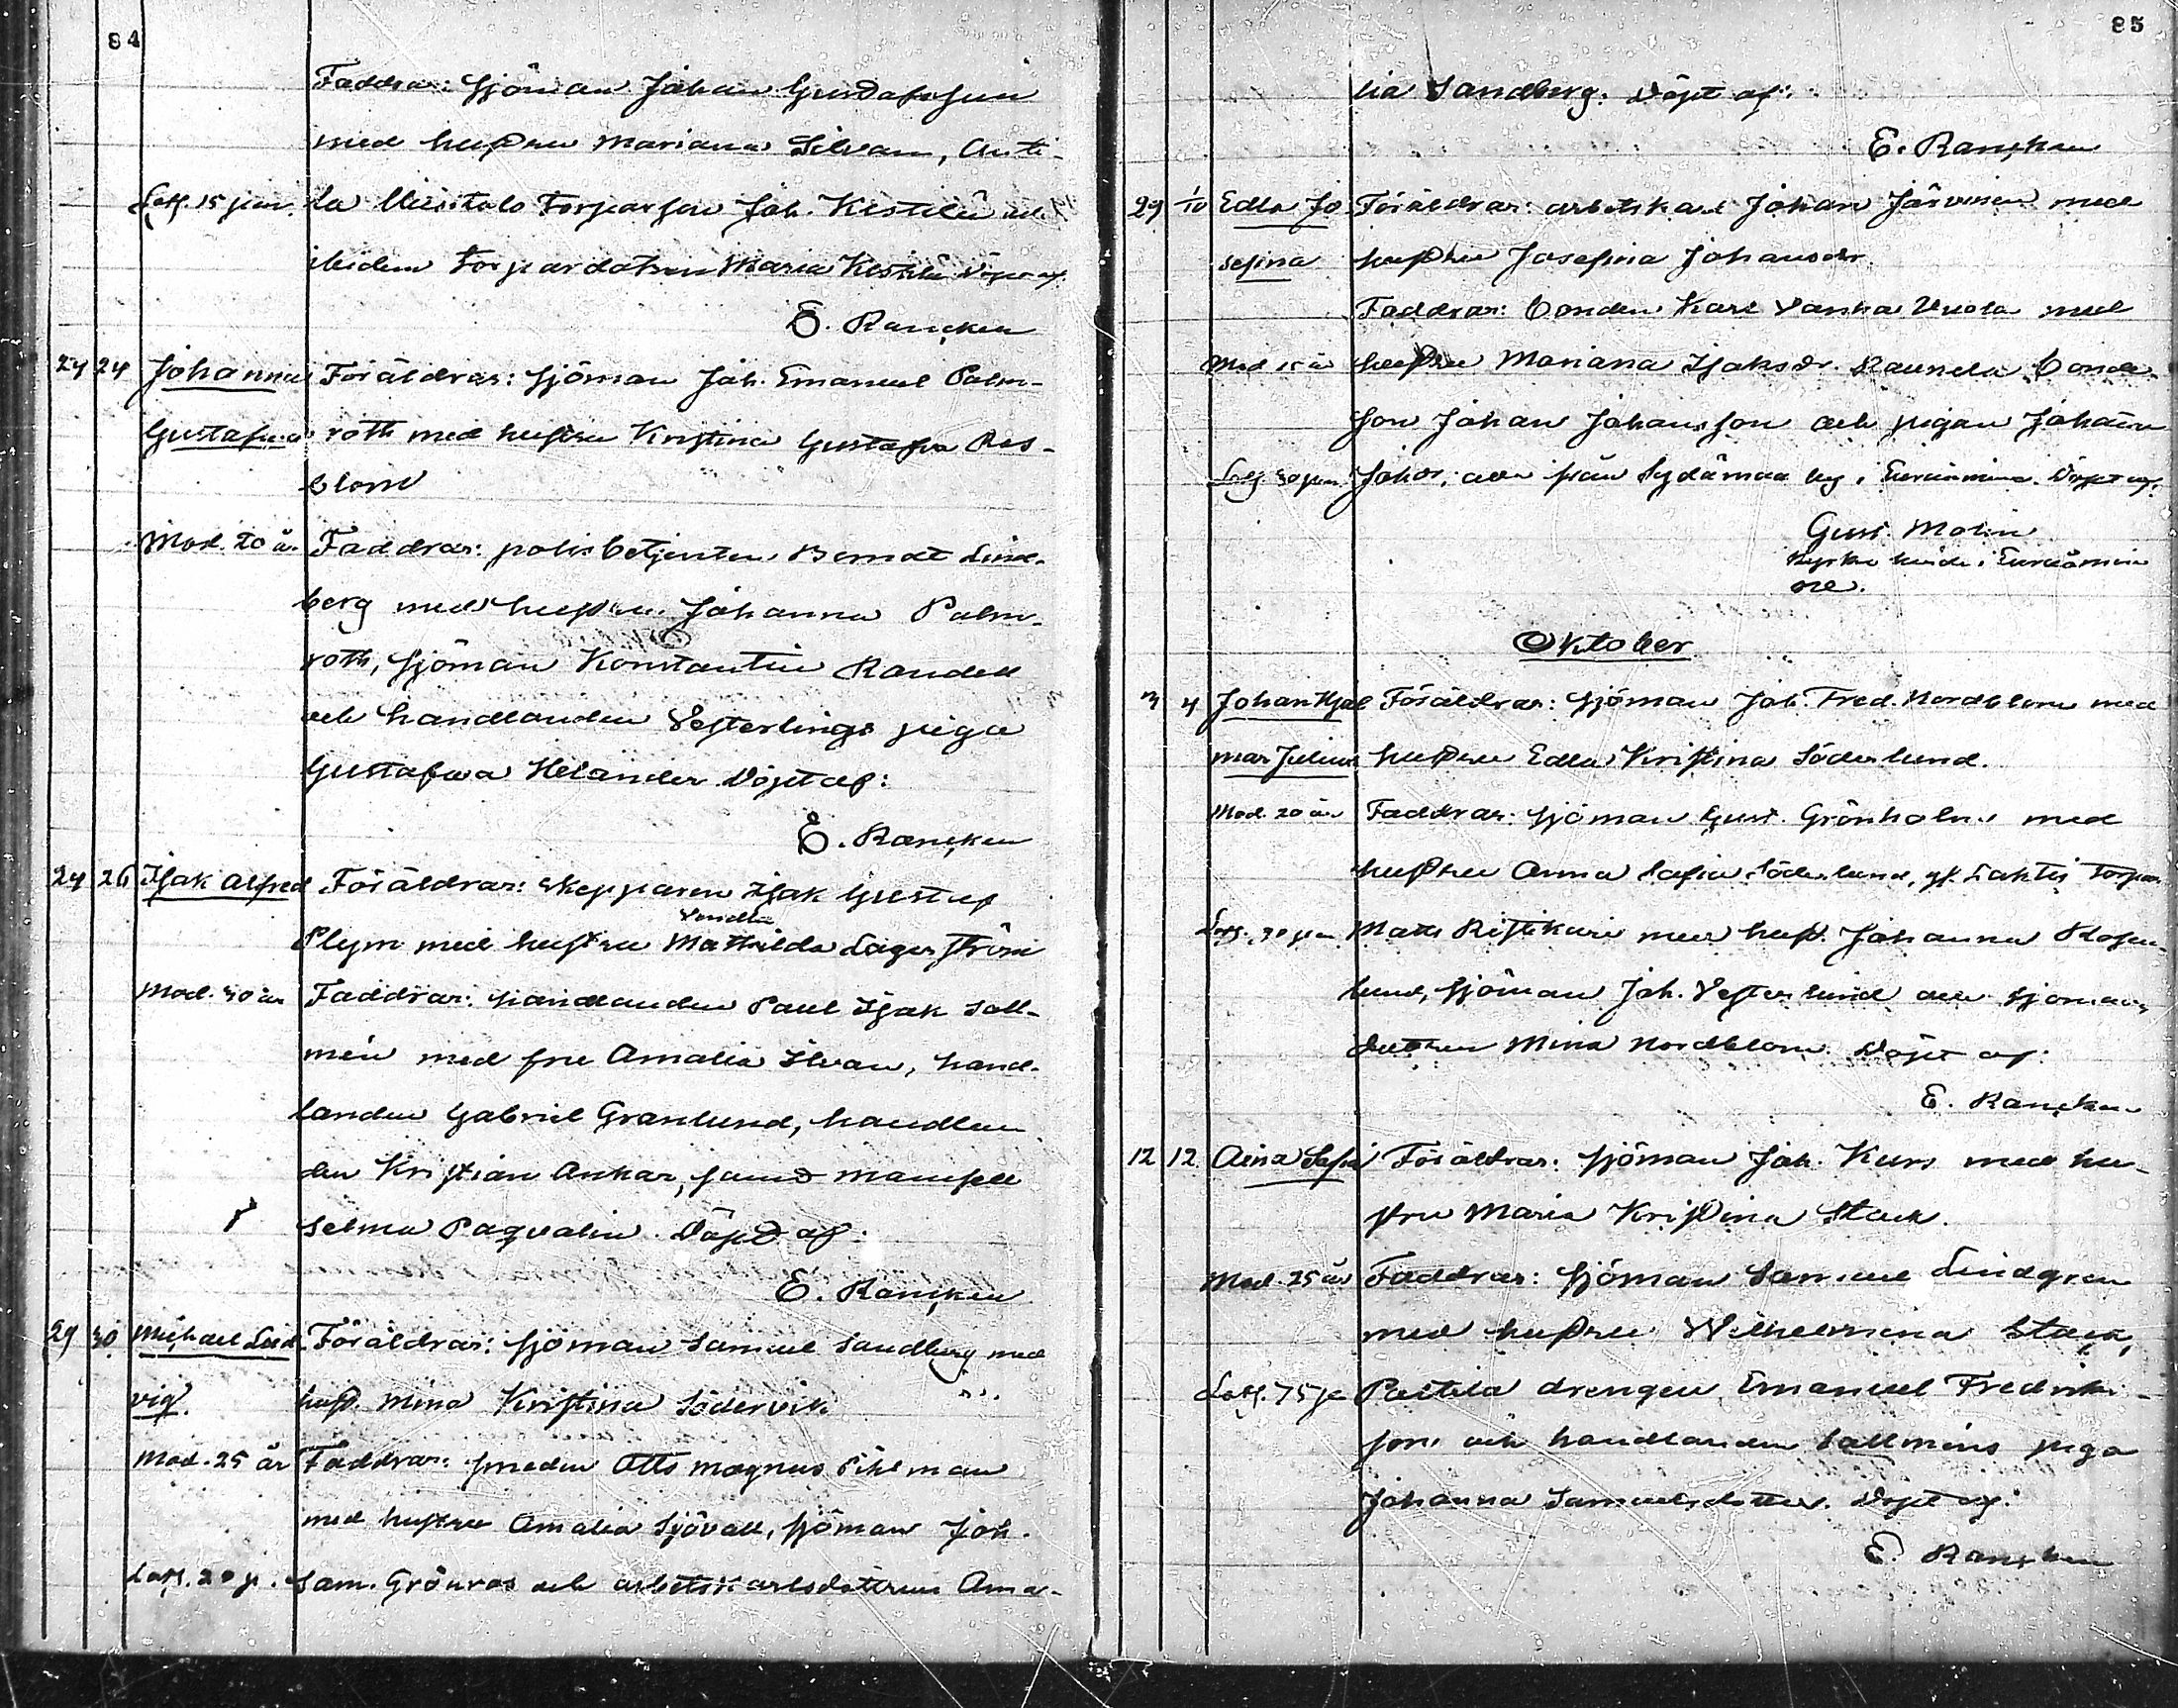 84
Faddrar: sjöman Johan Gustafsson
med hustru Mariana Silvan, Antti-
Loss. 15 pen. la Uusitalo Torparson Joh. Kestilä och
ibidem torpardottren Maria Kestilä Döpt af
E. Rancken
24 24 Johanna Föräldrar: sjöman Joh. Emanuel Palm-
Gustafva roth med hustru Kristina Gustafva Ros-
blom
Mod. 20 år Faddrar: polisbetjenten Berndt Lind-
berg med hustru Johanna Palm-
roth, sjöman Konstantin Randell
och handlanden Vesterlings piga
Gustafva Helander Döpt af:
E. Rancken
24 26 Isak Alfred Föräldrar: skepparen Isak Gustaf
Vendla
Plym med hustru Mathilda Lagerström
Mod. 30 år Faddrar: handlanden Paul Isak Sall-
mén med fru Amalia Ilvan, hand-
landen Gabriel Granlund, handlan
den Kristian Ankar, samt mamsell
Selma Paqvalin. Döpt af:
E. Rancken
29 30 Michael Lud- Föräldrar: sjöman Samuel Sandberg med
vig. hust. Mina Kristina Södervik
Mod. 25 år Faddrar: smeden Otto Magnus Pihlman
med hustru Amalia Sjövall, sjöman Joh.
Loss. 20 p. Sam. Grönros och arbetskarlsdottren Ama-
85
lia Sandberg. Döpt af:
E. Rancken
29 1/10 Edla Jo- Föräldrar: arbetskarl Johan Järvinen med
sefina hustru Josefina Johansdr.
Faddrar: bonden Karl Vanha Uuola med
Mod. 15 år hustru Mariana Isaksdr. Raunela bonde-
son Johan Johansson och pigan Johanna
Loss. 50 pen. Johdr, alla från Sydänmaa by i Euraåminne. Döpt af:
Gust. Molin
Kyrkoherde i Euraåmin
ne.
Oktober
3 4 Johan Hjal Föräldrar: sjöman Joh. Fred. Nordblom med
mar Julius hustru Edla Kristina Söderlund.
Mod. 20 år Faddrar: sjöman Gust. Grönholm med
hustru Anna Sofia Söderlund, Torpar.
Loss. Matts Ristikari med hust. Johanna Rosen-
lund, sjöman Joh. Vesterlund och sjömans
dottren Mina Nordblom. Döpt af:
E. Rancken
12 12 Aina Sofia Föräldrar: sjöman Joh. Kurs med hu-
stru Maria Kristina Stark.
Mod. 25 år Faddrar: sjöman Samuel Lindgren
med hustru Wilhelmina Stark,
Loss. 75 pe Paitila drengen Emanuel Fredriks-
son och handlanden Sallméns piga
Johanna Samuelsdotter. Döpt af:
E. Rancken